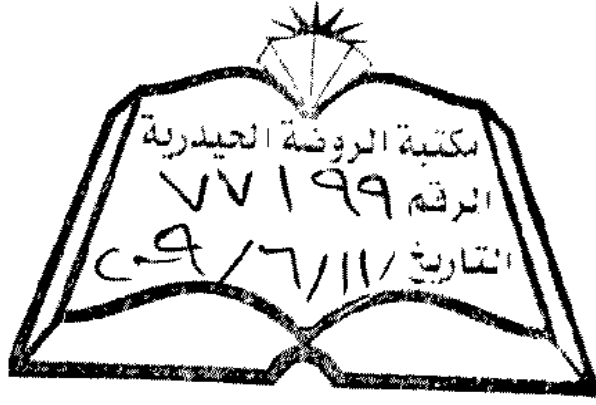 مكتبة الروضة الحيدرية
الرقم ٧٧١٩٩
التاريخ ١١/٦/٢٠٠٩